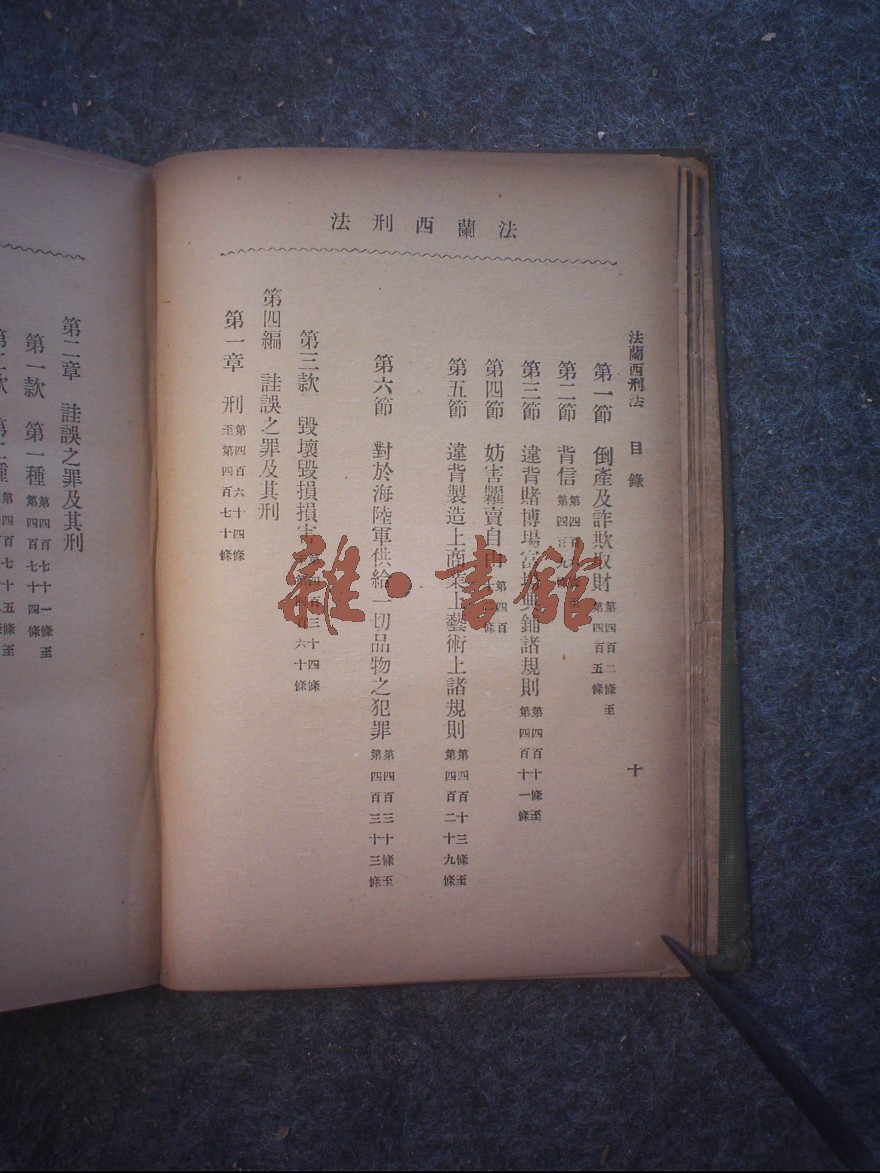 法蘭西刑法
法蘭西刑法 目錄 十
第一節 倒產及詐欺取財 第四百二條至第四百五條
第二節 背信
第三節 違背賭博場富
典鋪諸規則 第四百十條至第四百十一條
第四節 妨害糶賣自由 第四百
第五節 違背製造上商業上藝術上諸規則 第四百十三條至第四百二十九條
第六節 對於海陸軍供給一切品物之犯罪 第四百三十條至第四百三十三條
第三款 毀壞毀損損害 第四百三十四條
六十條
第四編 詿誤之罪及其刑
第一章 刑 第四百六十四條至第四百七十條
第二章 詿誤之罪及其刑
第一款 第一種 第四百七十一條至第四百七十四條
第四百七十五條至
雜·書館